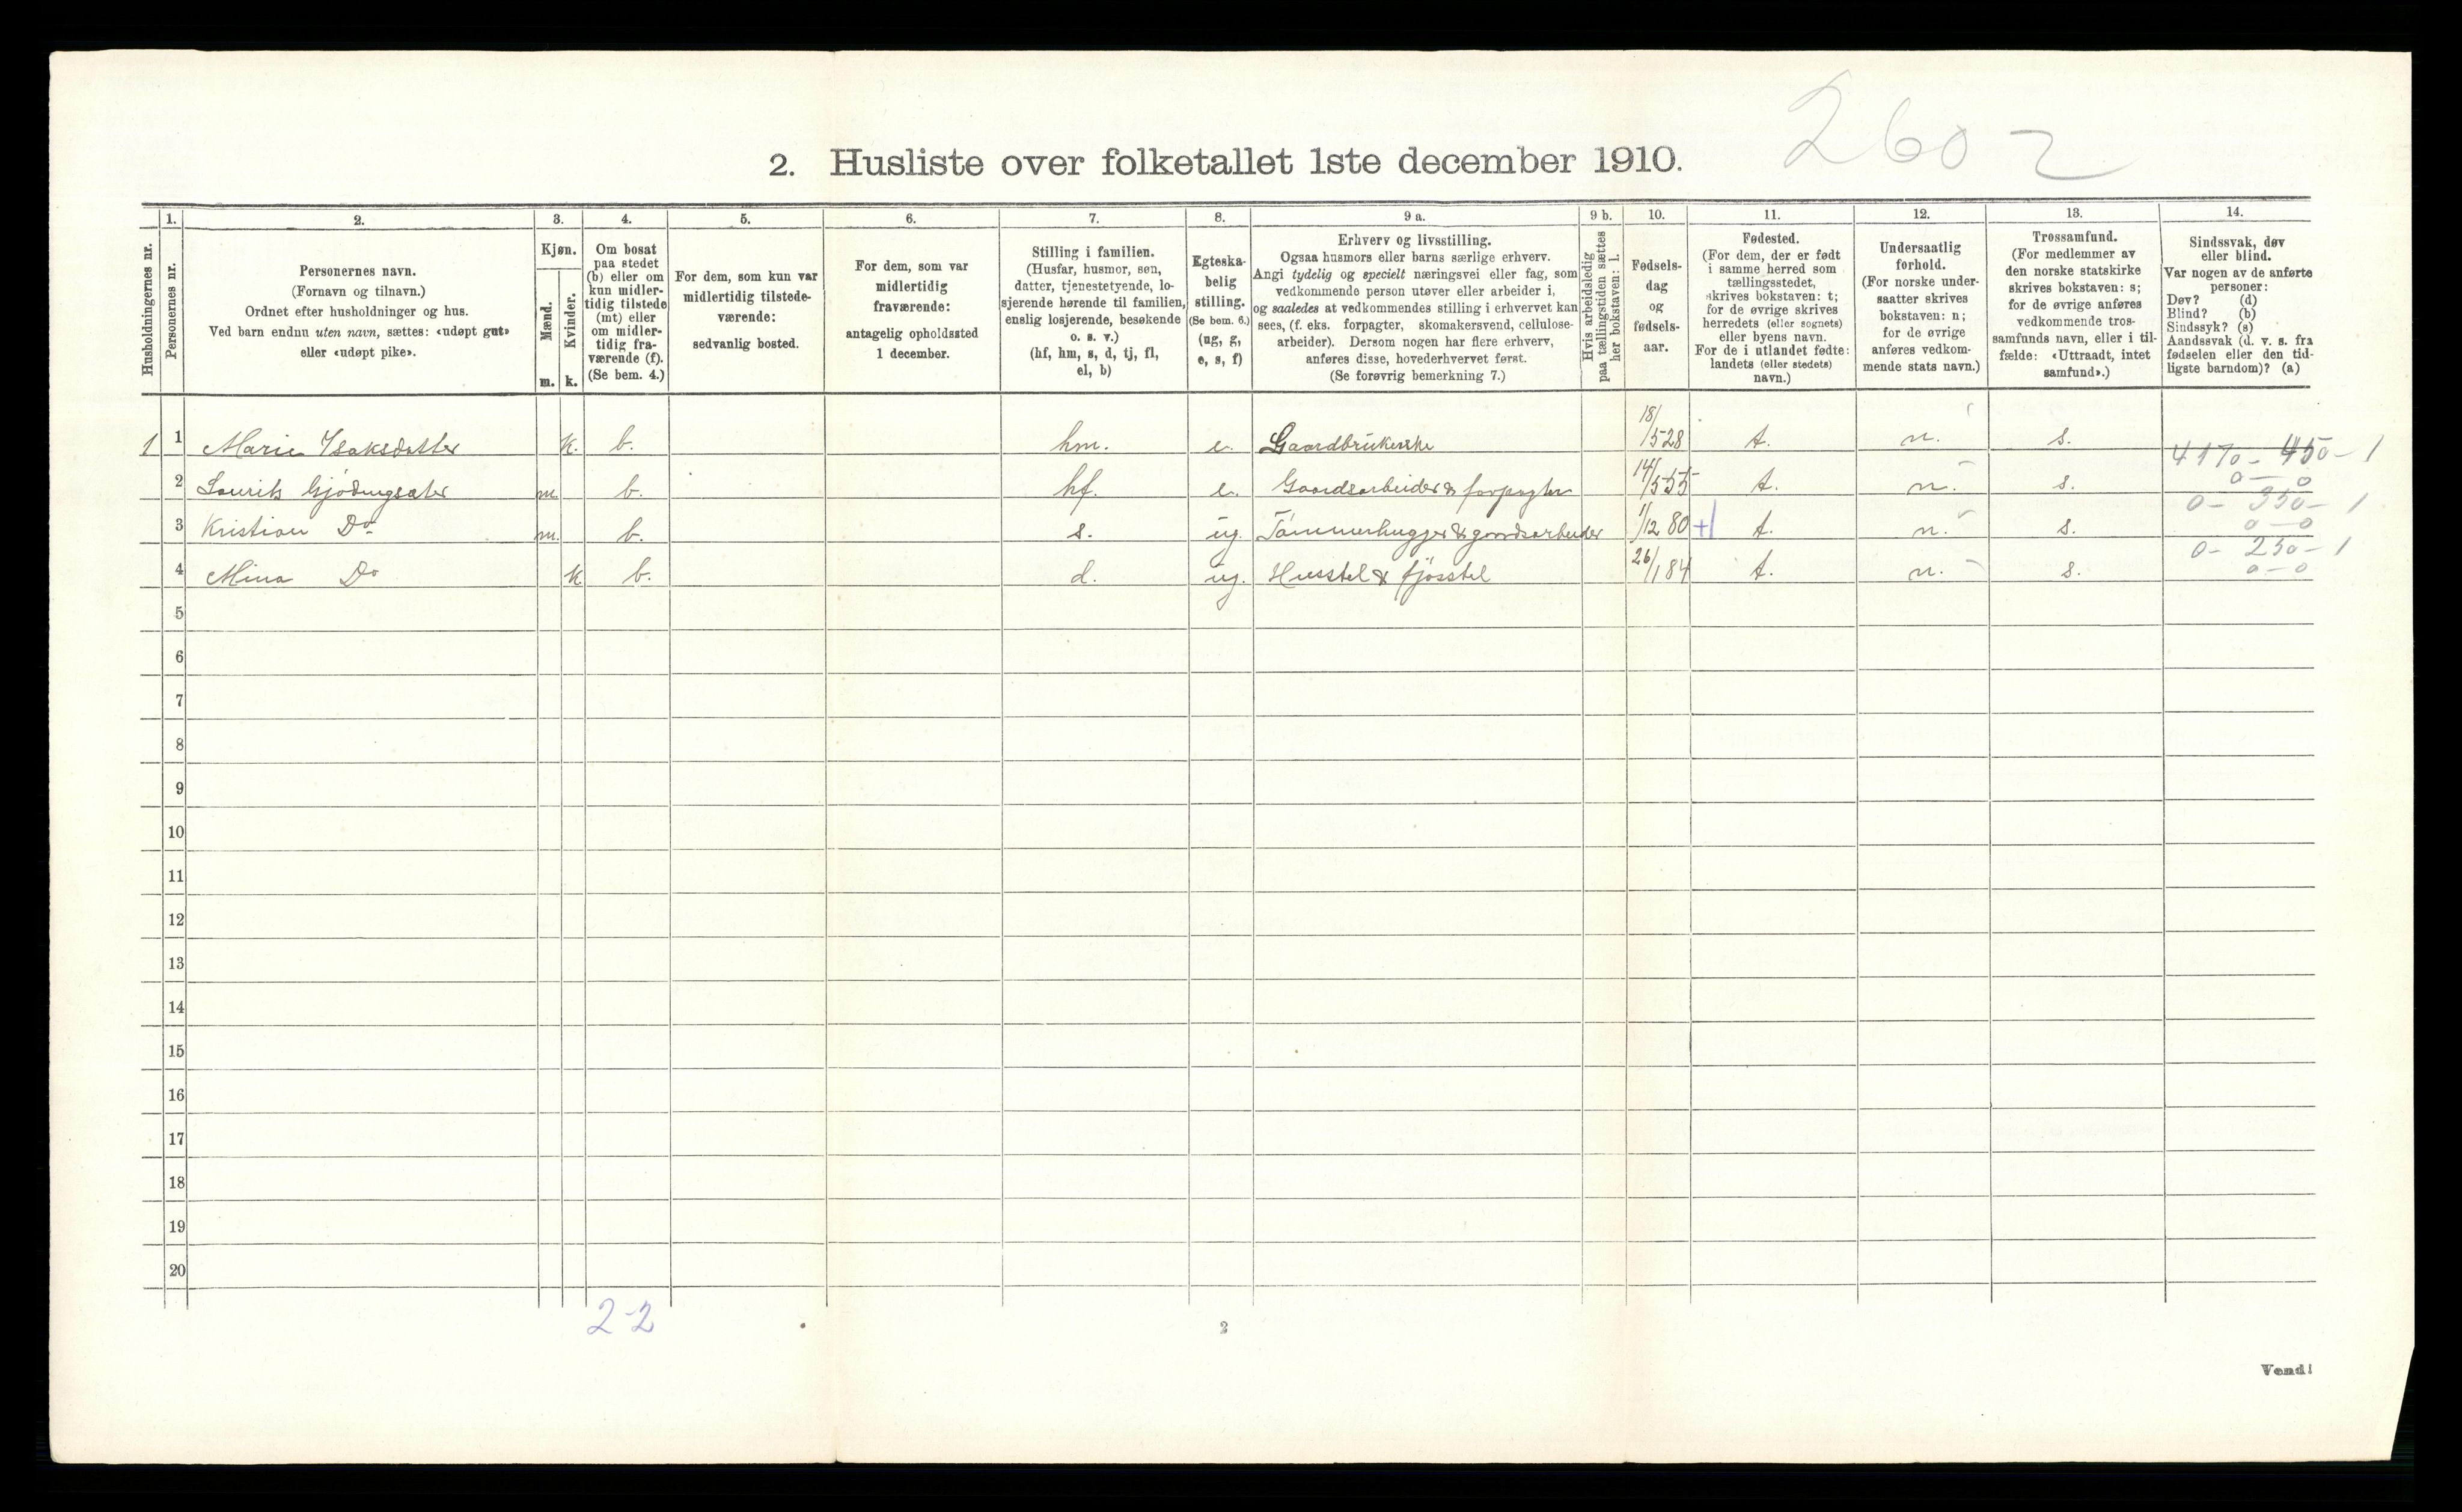 2602
2. Husliste over folketallet 1ste december 1910.
Husholdningernes nr.
1.
Personernes nr.
2.
Personernes navn.
(Fornavn og tilnavn.)
Ordnet efter husholdninger og hus.
Ved barn endnu uten navn, sættes: «udøpt gut»
eller «udøpt pike».
3.
Kjøn.
Mænd.
m.
Kvinder.
k.
4.
Om bosat
paa stedet
(b) eller om
kun midler-
tidig tilstede
(mt) eller
om midler-
tidig fra-
værende (f).
(Se bem. 4.)
5.
For dem, som kun var
midlertidig tilstede-
værende:
sedvanlig bosted.
6.
For dem, som var
midlertidig
fraværende:
antagelig opholdssted
1 december.
7.
Stilling i familien.
(Husfar, husmor, søn,
datter, tjenestetyende, lo-
sjerende hørende til familien,
enslig losjerende, besøkende
o. s. v.)
(hf, hm, s, d, tj, fl,
el, b)
8.
Egteska-
belig
stilling.
(Se bem. 6.)
(ug, g,
e, s, f)
9 a.
Erhverv og livsstilling.
Ogsaa husmors eller barns særlige erhverv.
Angi tydelig og specielt næringsvei eller fag, som
vedkommende person utøver eller arbeider i,
og saaledes at vedkommendes stilling i erhvervet kan
sees, (f. eks. forpagter, skomakersvend, cellulose-
arbeider). Dersom nogen har flere erhverv,
anføres disse, hovederhvervet først.
(Se forøvrig bemerkning 7.)
9 b.
Hvis arbeidsledig
paa tællingstiden sættes
her bokstaven: l.
10.
Fødsels-
dag
og
fødsels-
aar.
11.
Fødested.
(For dem, der er født
i samme herred som
tællingsstedet,
skrives bokstaven: t;
for de øvrige skrives
herredets (eller sognets)
eller byens navn.
For de i utlandet fødte:
landets (eller stedets)
navn.)
12.
Undersaatlig
forhold.
(For norske under-
saatter skrives
bokstaven: n;
for de øvrige
anføres vedkom-
mende stats navn.)
13.
Trossamfund.
(For medlemmer av
den norske statskirke
skrives bokstaven: s;
for de øvrige anføres
vedkommende tros-
samfunds navn, eller i til-
fælde: «Uttraadt, intet
samfund».)
14.
Sindssvak, døv
eller blind.
Var nogen av de anførte
personer:
Døv? (d)
Blind? (b)
Sindssyk? (s)
Aandssvak (d. v. s. fra
fødselen eller den tid-
ligste barndom)? (a)
1 1 Marie Isaksdatter k. b. hm. e. Gaardbrukerske 18/5 28 t. n. s. 4170 - 450 - 1
0 - 0
2 Laurits Gjödingsæter m. b. hf. e. Gaardsarbeider & forpagter 14/5 55 t. n. s. 0 - 350 - 1
0 - 0
3 Kristian Do m. b. s. ug. Tømmerhugger & gaardsarbeider 1/12 80 t. n. s. 0 - 250 - 1
0 - 0
4 Mina Do k b. d. ug. Husstel & fjösstel 26/1 84 t. n. s.
5
6
7
8
9
10
11
12
13
14
15
16
17
18
19
20
2-2
2
Vend!